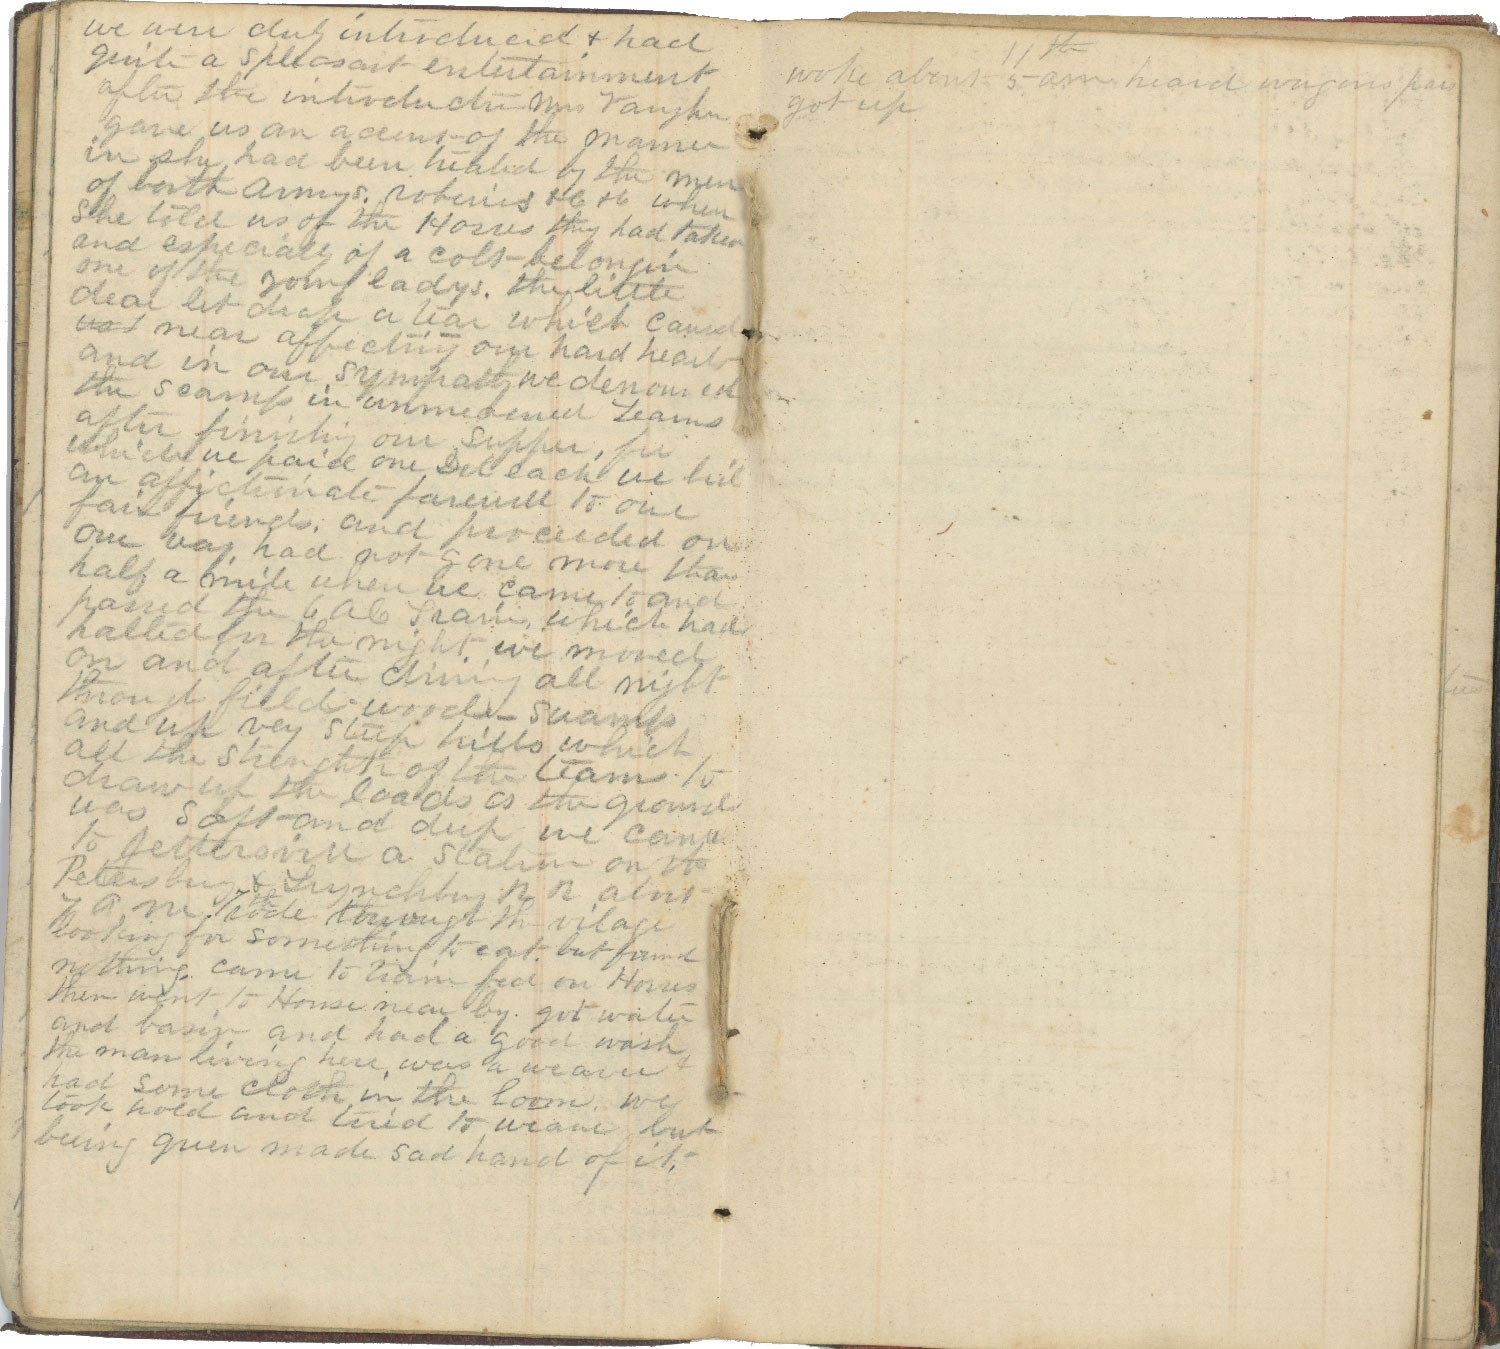 we were duly introduced & had
quite a pleasant entertainment
after the introductin Mrs Vaughn
gave us an accent of the manner
in shy had been treated by the men
of both Armys. roberies &c &c when
She told us of the Horses they had taken
and especialy of a colt belongin
one of the young ladys. the little
dear let drop a tear which caused
near affecting our hard hearts
and in our sympathy we denounced
the scamps in unmeasured Teams
after finishing our supper, for
which we paid one Dol each we bid
an affictinate farewell to our
fair friends. and proceeded on
our way had not gone more than
half a mile when we came to and
passed the 6 AC Train, which had
halted for the night we moved
on and after driving all night
through field woods swamps
and up very steep hills which
all the strength of the teams to
draw up the loads as the ground
was soft and deep we came
to Jettersvill a station on the
Petersburg & Lynchburg R R about
7 A m 7th rode through th vilage
looking for something to eat. but found
nothing. came to train fed on Horses
then went to House near by. got water
and basin and had a good wash
the man living here, was a weaver &
had some cloth in the loom. we
took hold and tried to weave but
being green made sad hand of it.
11th
woke about 5 am heard wagons pass
got up